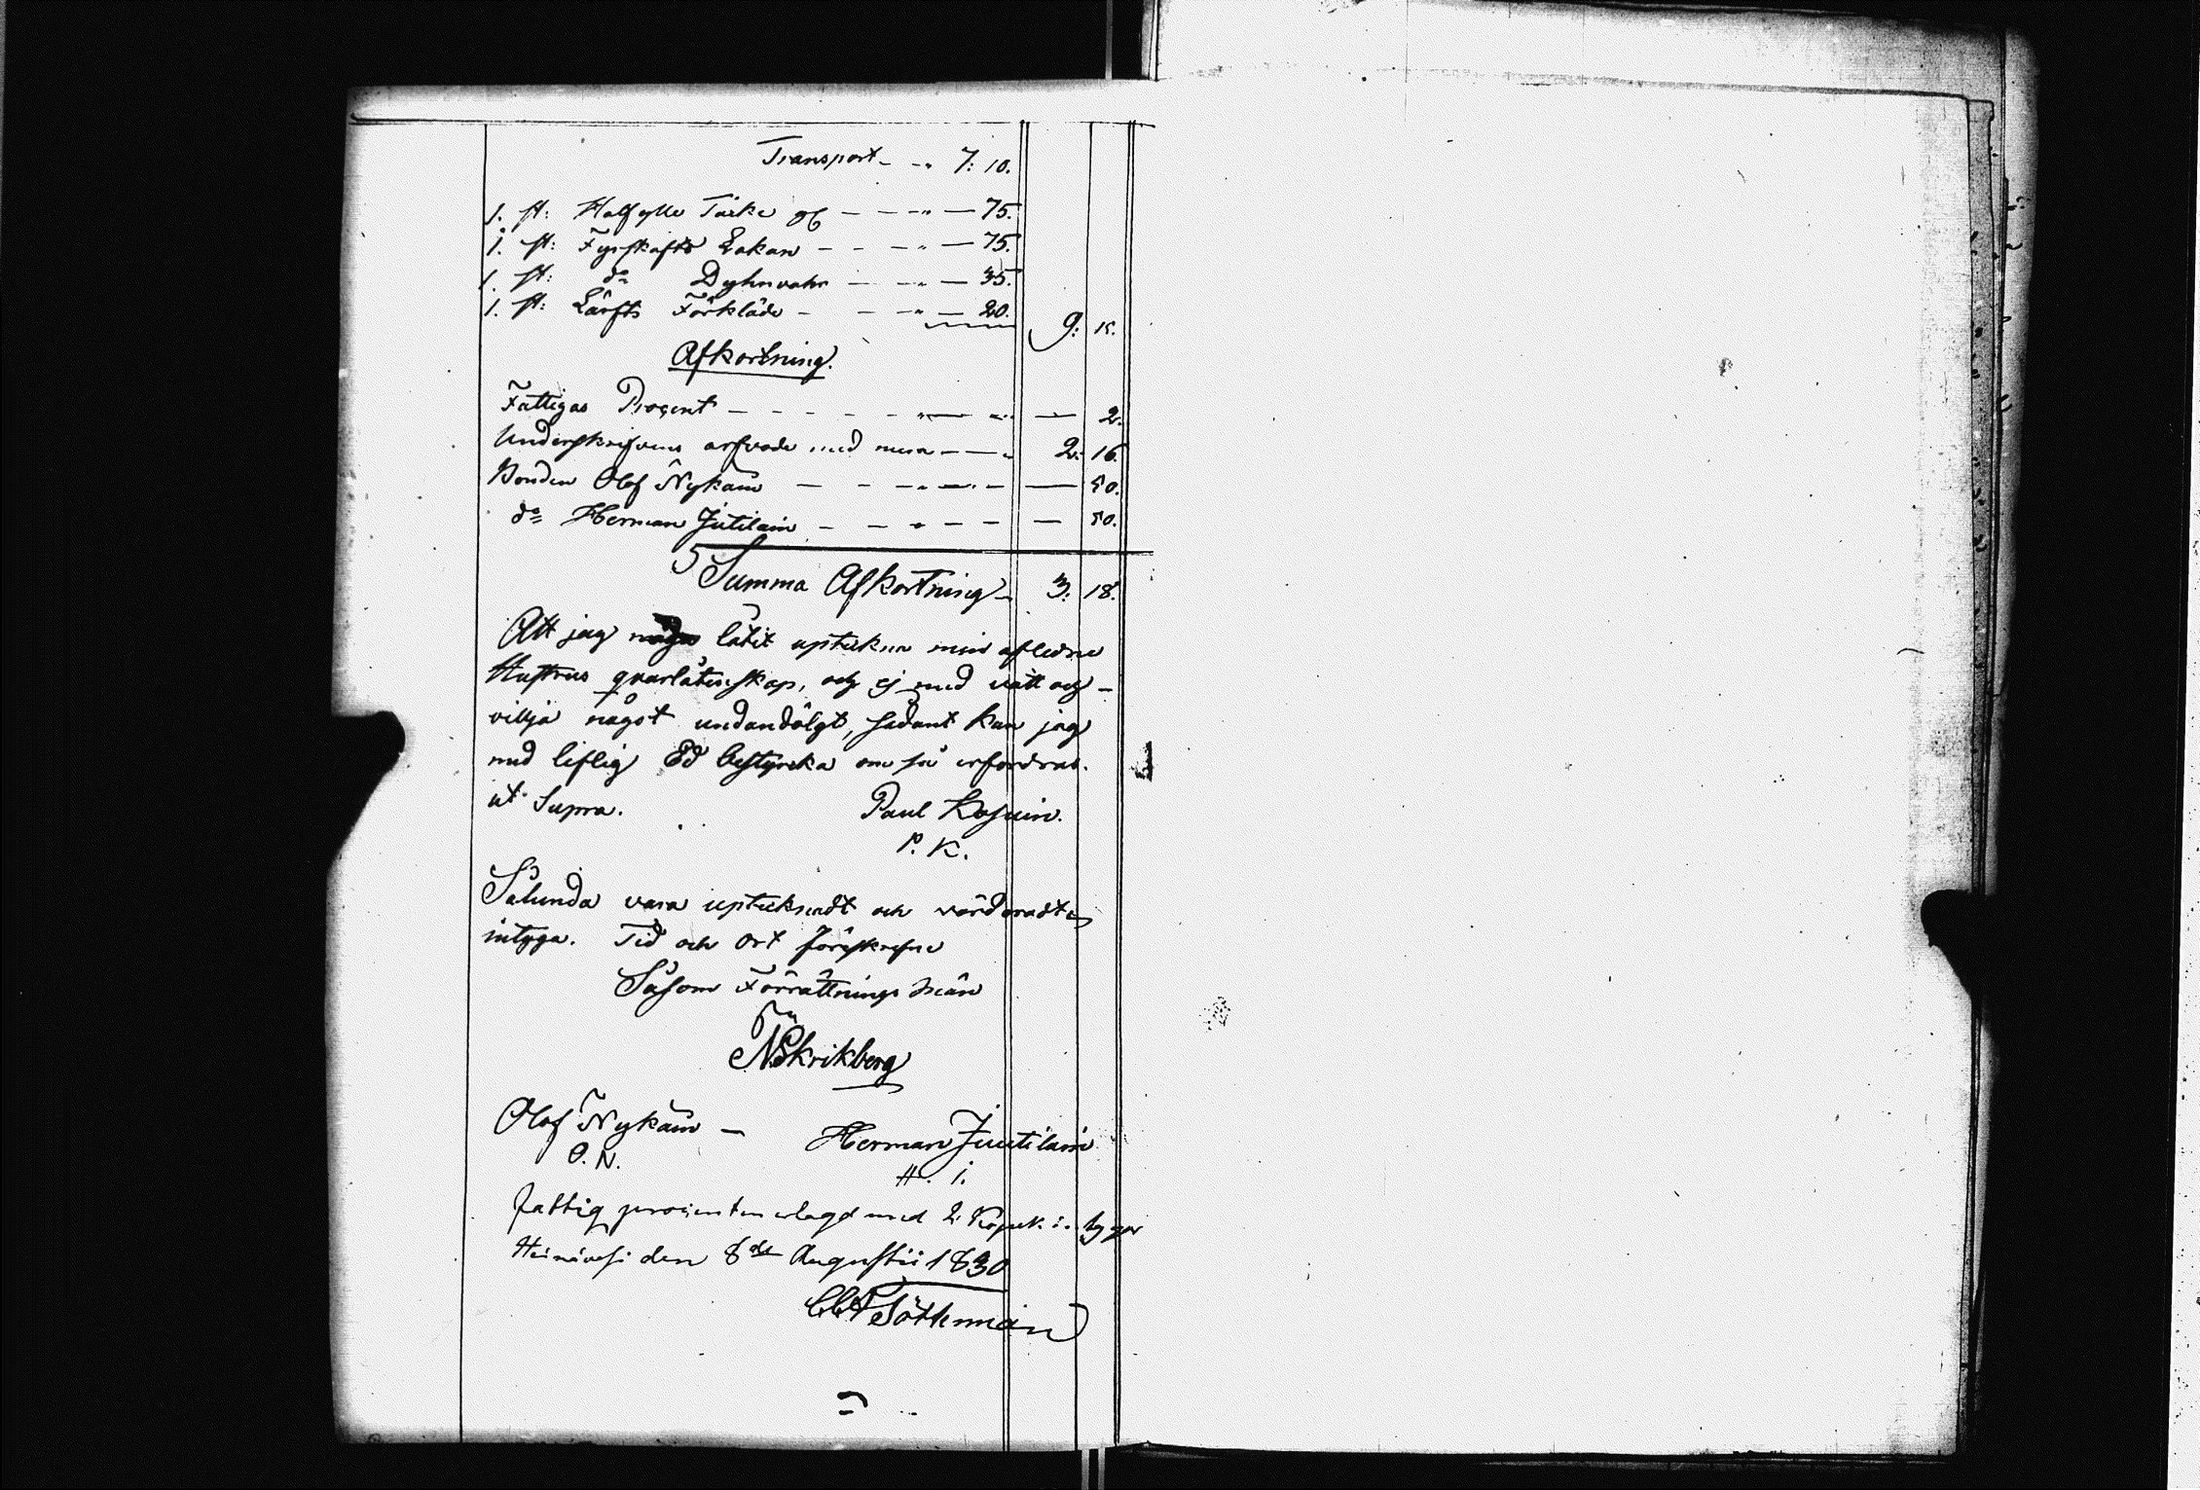 Transport - - " 7: 10.
1. st: Halfylle Täcke - - - " - 75.
1. st: Fyrskafts Lakan - - - " - 75.
1. st: do Dyhnvahr - - " - 35.
1. st: Lärfts Förkläde - - - " - 20. 9: 15.
Afkortning.
Fattigas Procent - - - - - " - " - 2.
Underskrifvens arfvode med mera - - - 2: 16.
Bonden Olof Nykäin - - - " - " - - 50.
do Herman Jutilain - - " - - - 50.
Summa Afkortning - 3: 18.
Att jag låtit uptekna min afledne
Hustrus qvarlåtenskap, och ej med vett och
vilja något undandölgt, sådant kan jag
med liflig Ed bestyrcka om så erfordras.
ut Supra. Paul Kosuin.
P. K.
Sålunda vara upteknadt och värderadt
intyga. Tid och Ort föreskrefne
Såsom Förrättnings Män
NSkrikberg
Olof Nykäin - Herman Juutilain
O. N. H. i.
fattig procenten erlagd med 2 Kopek: intygar
Heinävesi den 8de Augustii 1830